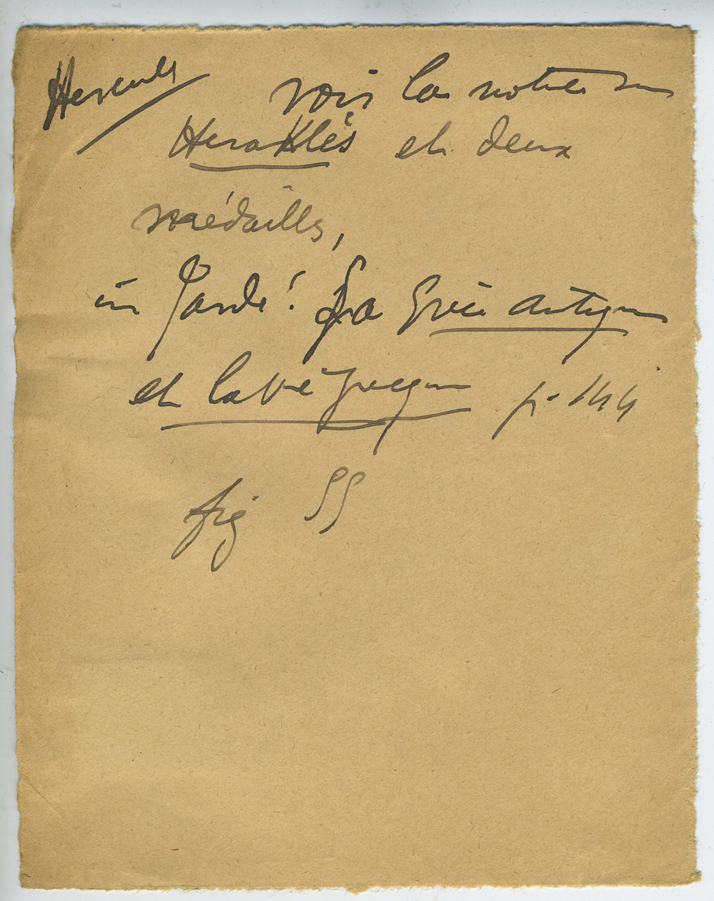 Hercule
voir la notice sur
Heraklès et deux
médailles,
in Jardé : La Grèce antique
et la vie grecque p. 144
fig 55